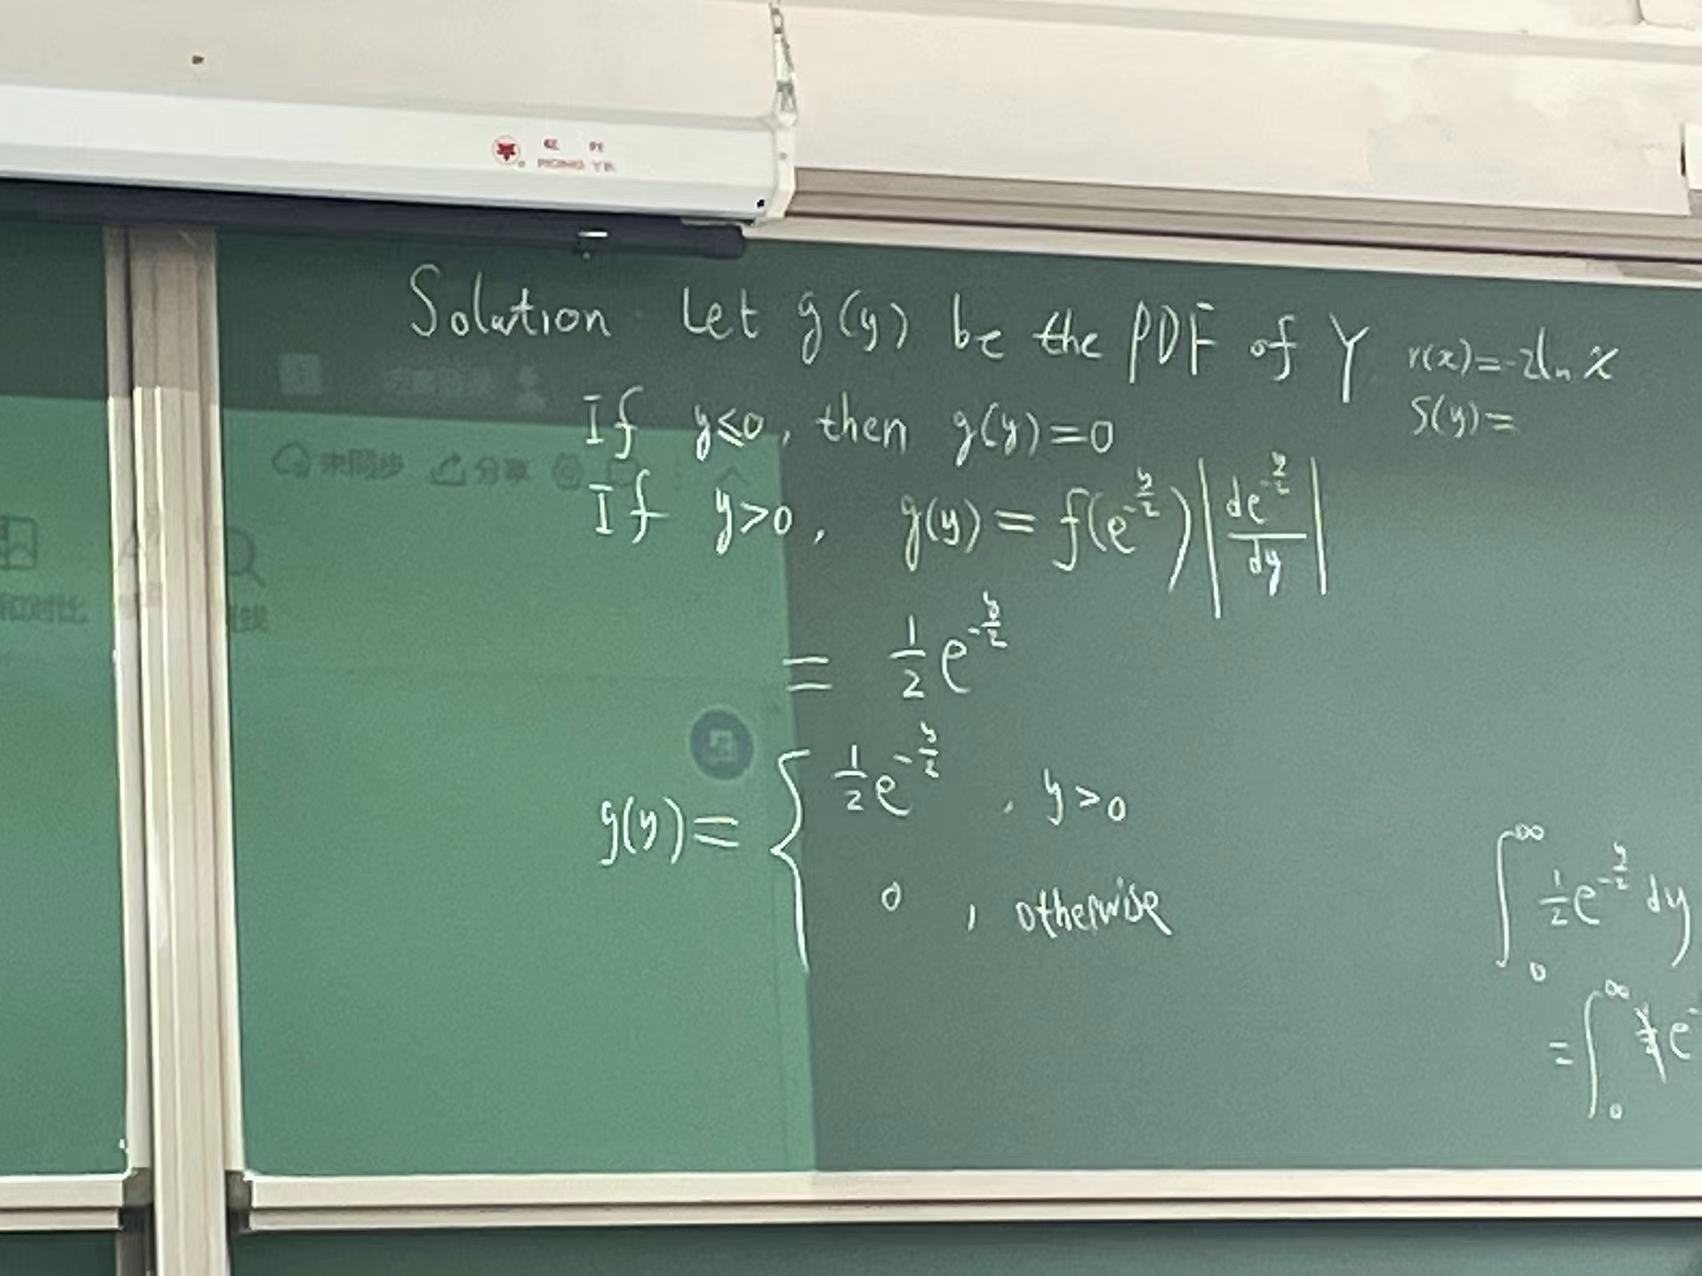 Solution. Let g(y) be the PDF of Y r(x)=-2ln x
S(y)=
If y≤0, then g(y)=0
If y>0, g(y)=f(e^{-y/2})|de^{-y/2}/dy|
= 1/2 e^{-y/2}
g(y)= { 1/2 e^{-y/2}, y>0
0, otherwise
∫_0^∞ 1/2 e^{-y/2} dy
=∫_0^∞ e
未同步 分享